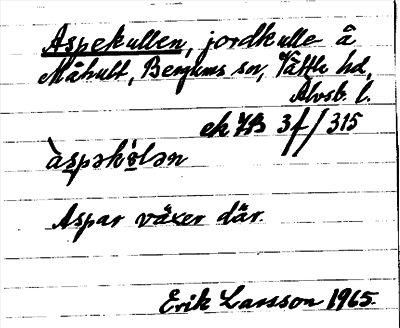 Aspekullen, jordkulle å
Måhult, Bergums sn, Vättle hd,
Älvsb. l.
ek 7B 3f/315
àspək'ɵlən
Aspar växer där.
Erik Larsson 1965.